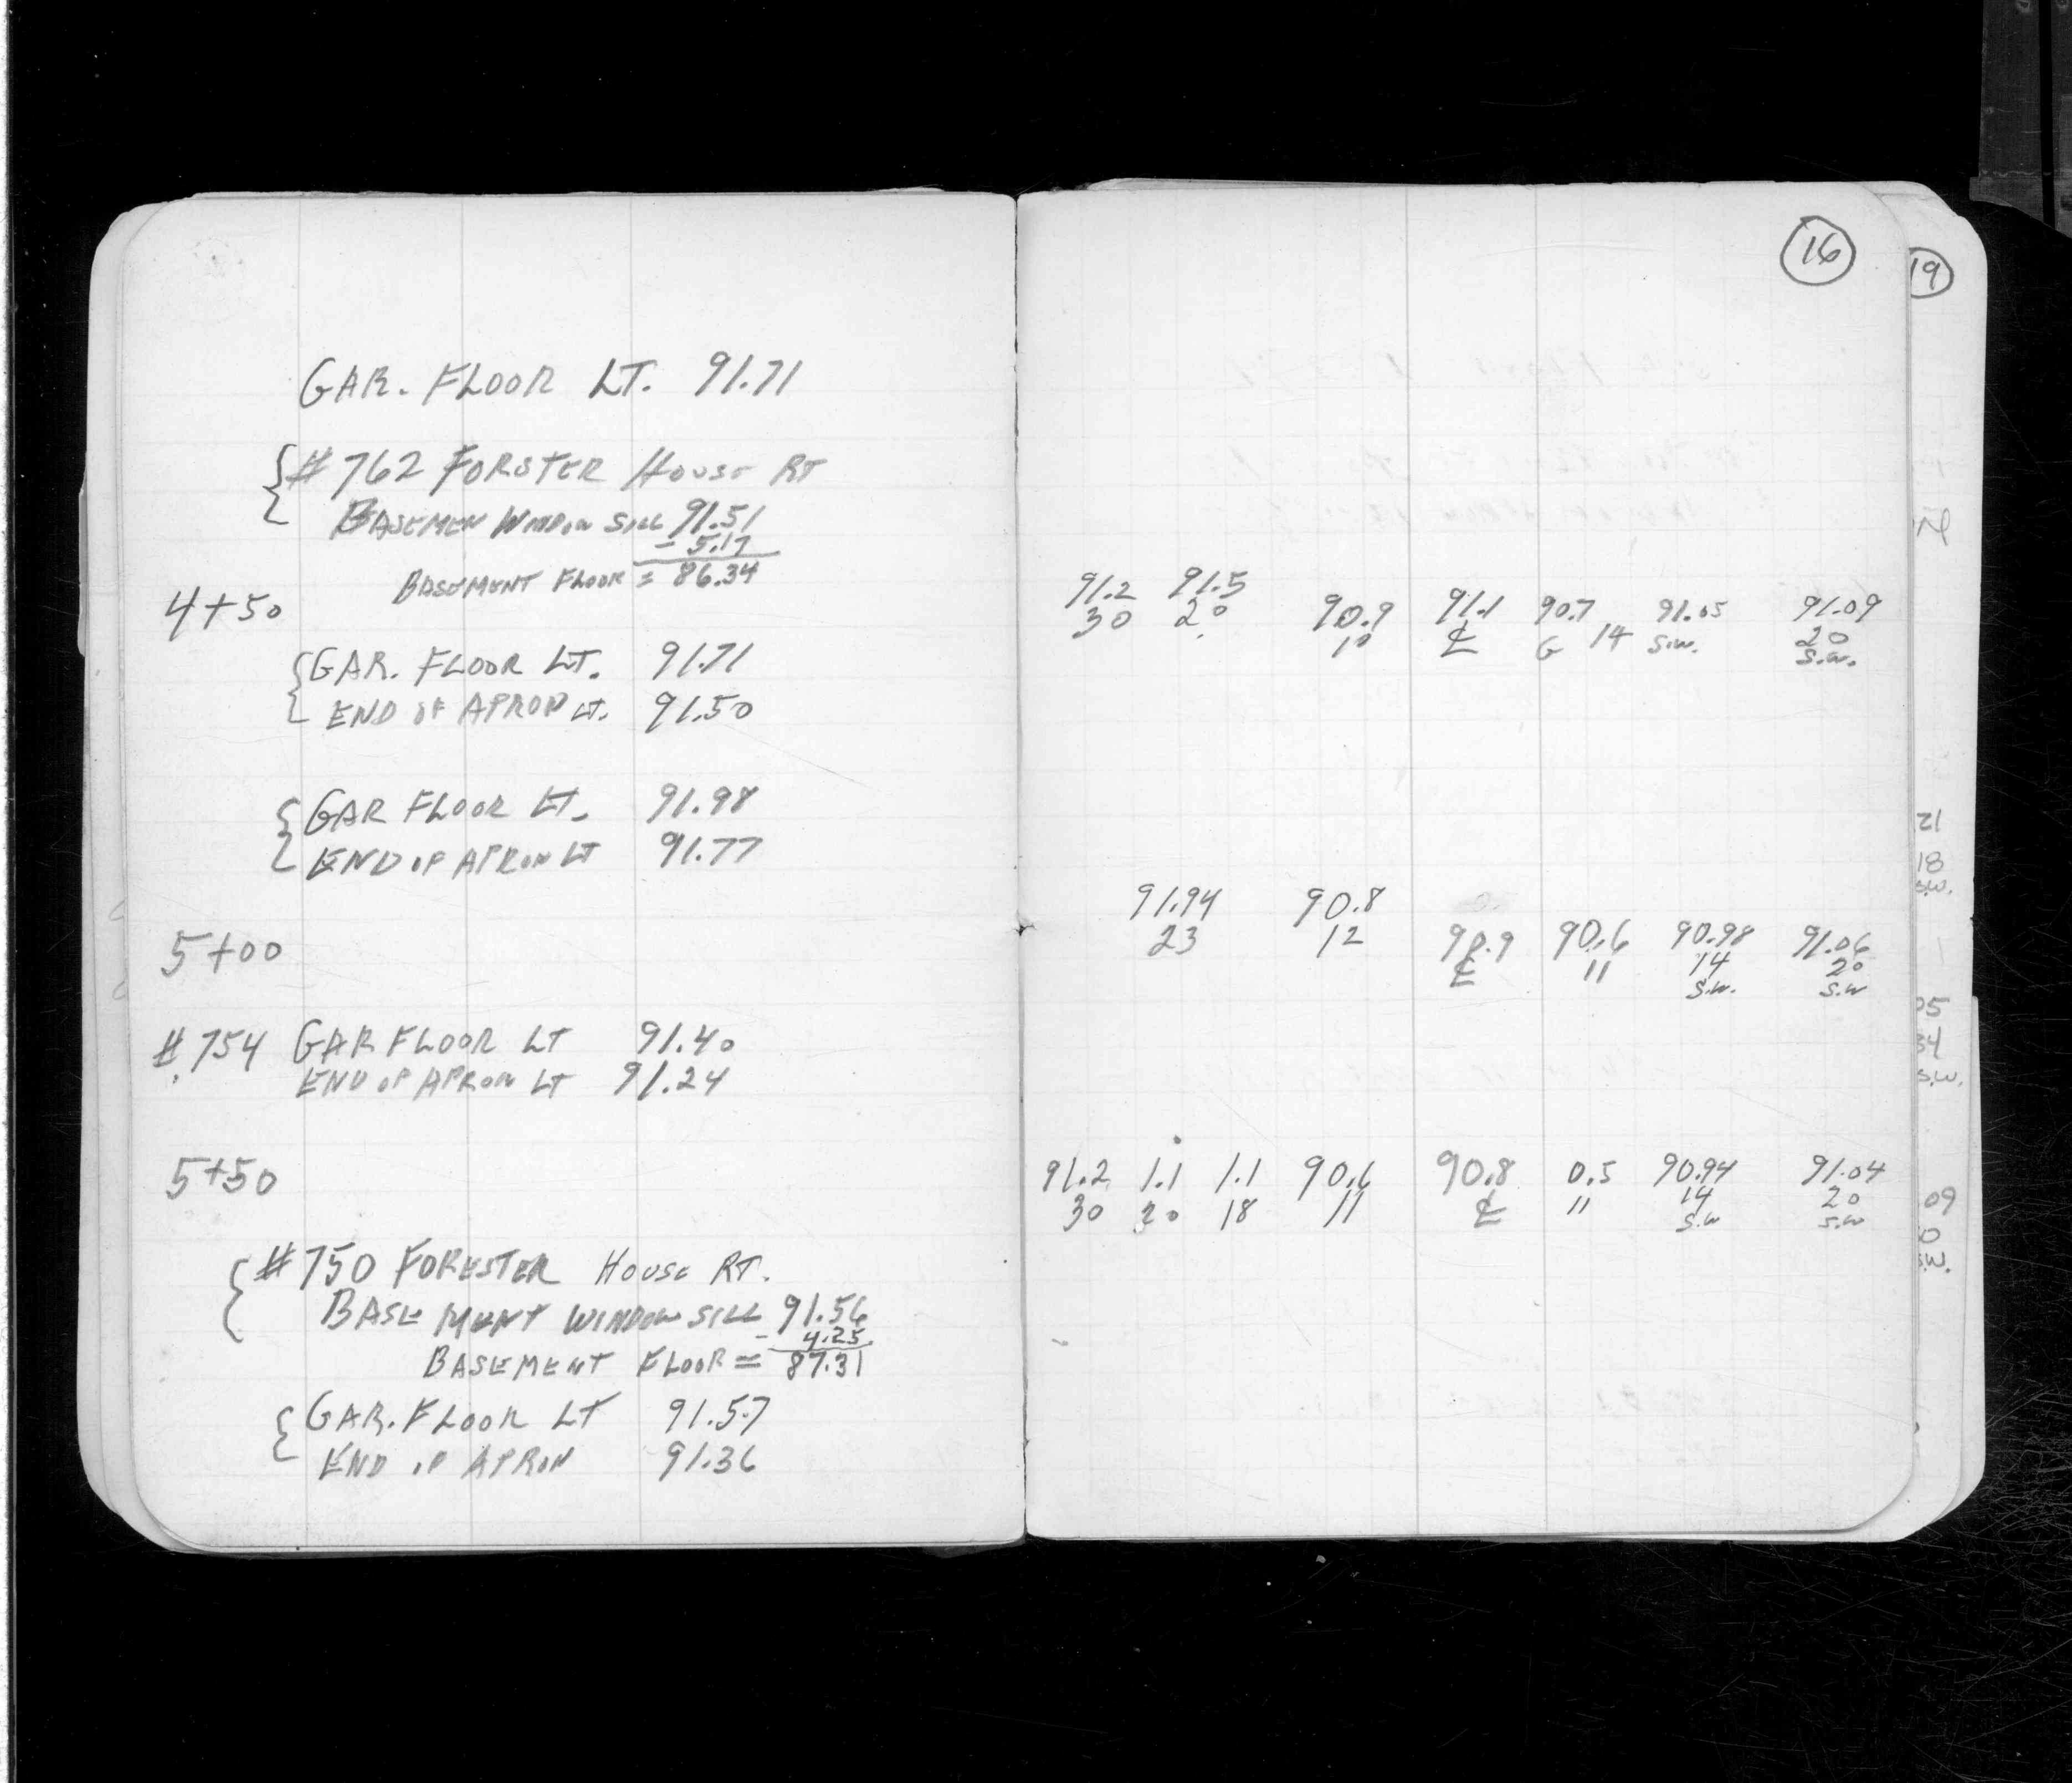 GAR. FLOOR LT. 91.71
# 762 FORSTER HOUSE RT
BASEMEN WINDOW SILL 91.51
- 5.17
BASEMENT FLOOR = 86.34
4+50
GAR. FLOOR LT. 91.71
END OF APRON LT. 91.50
GAR FLOOR LT. 91.98
END OF APRON LT 91.77
5+00
# 754 GAR FLOOR LT 91.40
END OF APRON LT 91.24
5+50
# 750 FORESTER HOUSE RT.
BASEMENT WINDOW SILL 91.56
- 4.25
BASEMENT FLOOR = 87.31
GAR. FLOOR LT 91.57
END OF APRON 91.36
16
91.2 91.5 90.9 91.1 90.7 91.05 91.09
30 20 10 ℄ G 14 S.W. 20
S.W.
91.94 90.8 90.9 90.6 90.98 91.06
23 12 ℄ 11 14 20
S.W. S.W
91.2 1.1 1.1 90.6 90.8 0.5 90.94 91.04
30 20 18 11 ℄ 11 14 20
S.W S.W
19
21
18
S.W.
05
34
S.W.
09
S.W.